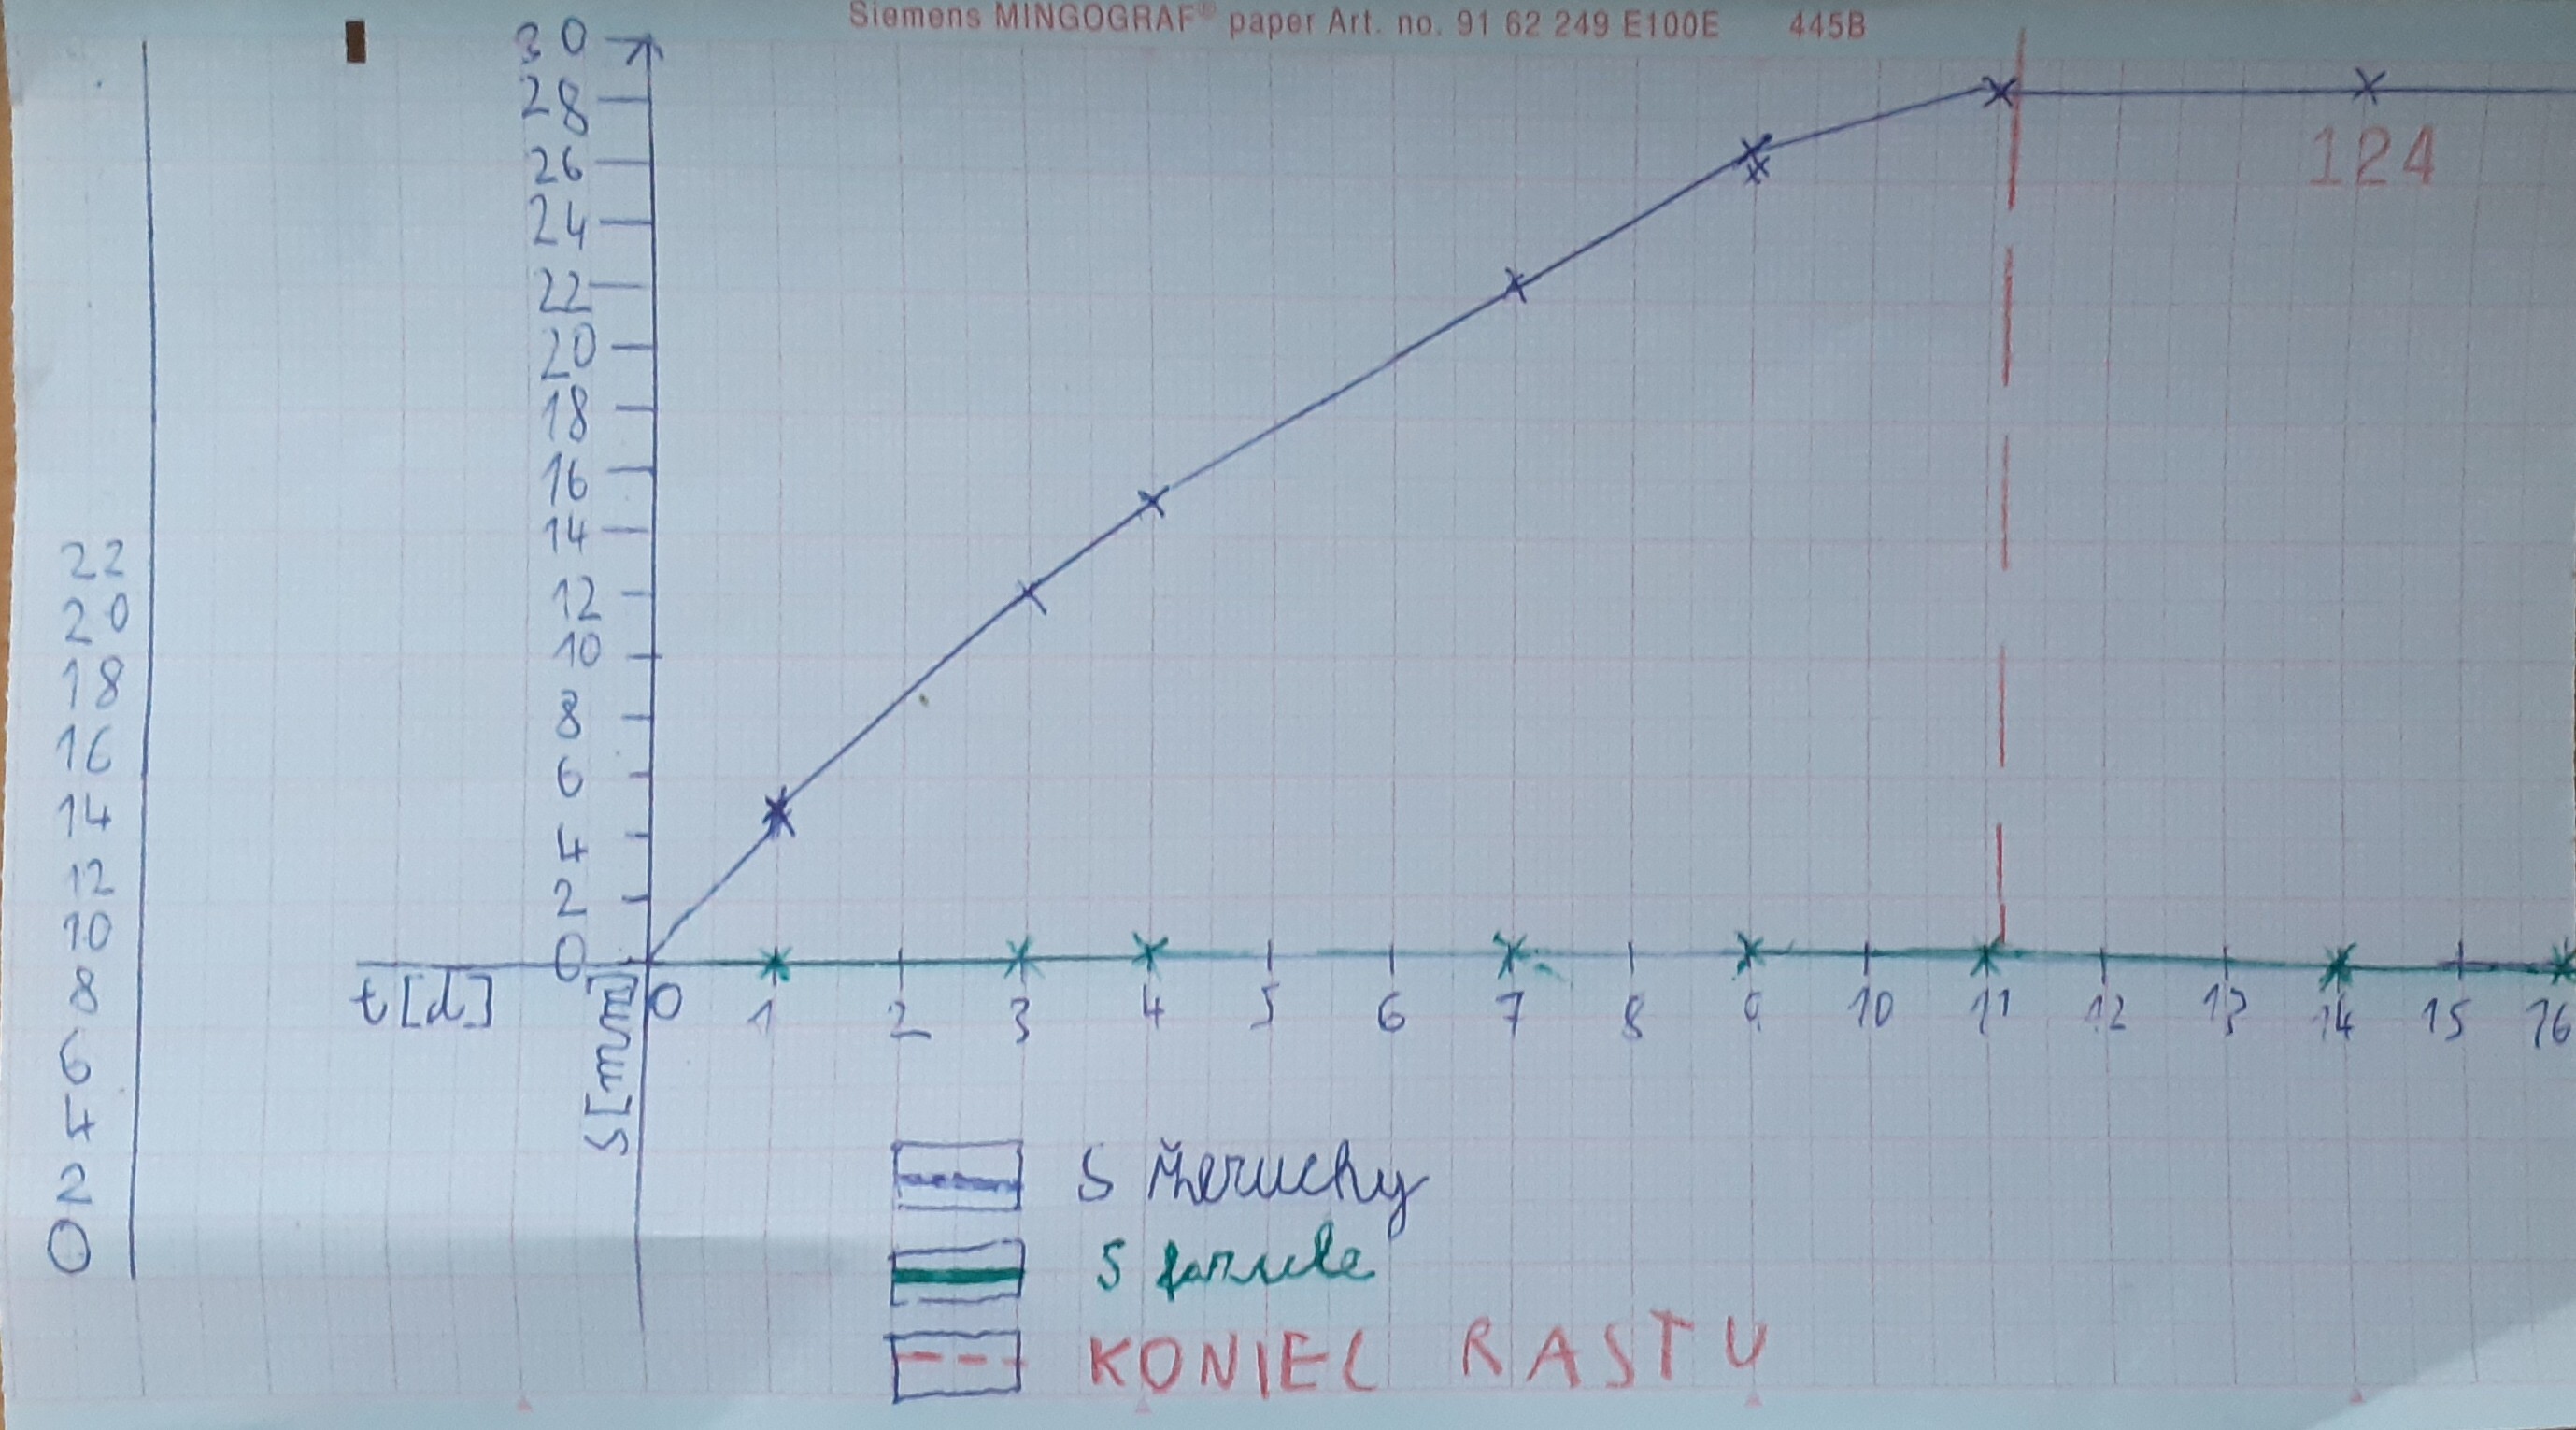 Siemens MINGOGRAF® paper Art. no. 91 62 249 E100E 445B
30
28
26
24
22
20
18
16
14
12
10
8
6
4
2
0
124
22
20
18
16
14
12
10
8
6
4
2
0
t[d]
S[mm]
0 1 2 3 4 5 6 7 8 9 10 11 12 13 14 15 16
S žeruchy
S fazule
KONIEC RASTU